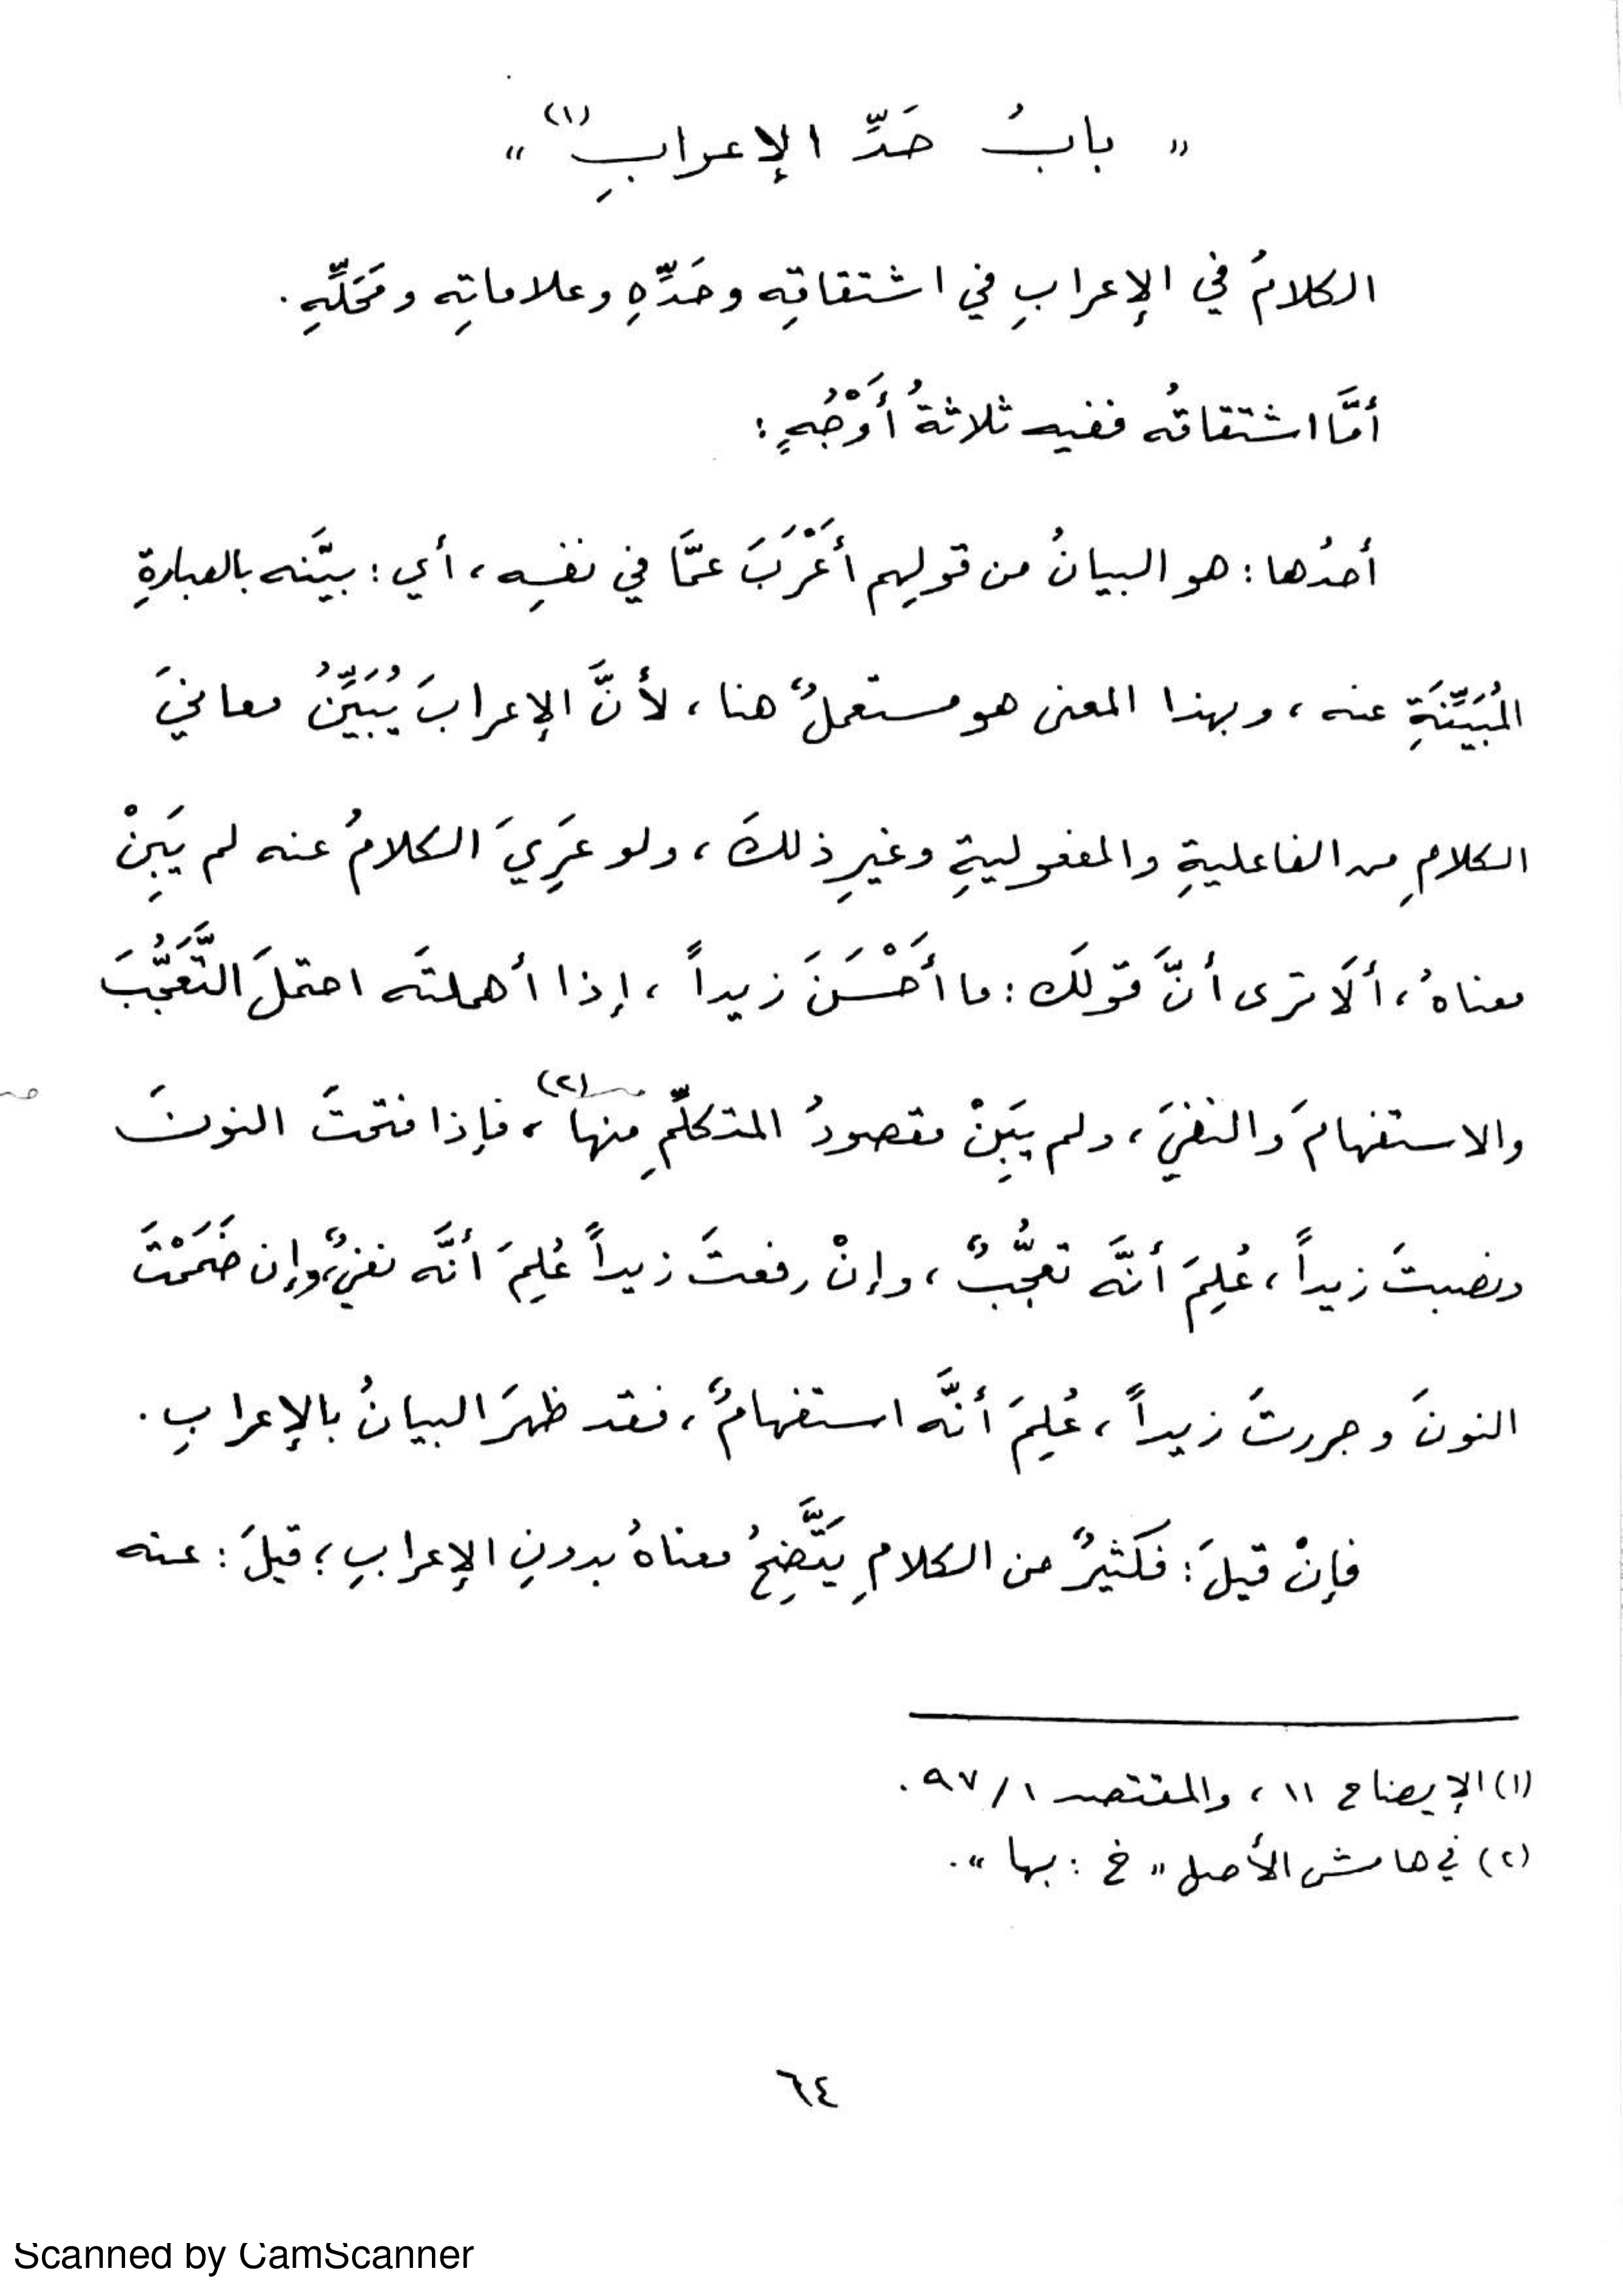 « بابُ حَدِّ الإعرابِ(١) »
الكلامُ في الإعرابِ في اشتقاقِه وحَدِّهِ وعلاماتِه ومَحَلِّهِ.
أمَّا اشتقاقُه ففيه ثلاثةُ أَوْجُهٍ :
أحدُها : هو البيانُ من قولِهم أَعْرَبَ عمَّا في نفسِه ، أي : بيَّنه بالعبارةِ
المُبَيِّنَةِ عنه ، وبهذا المعنى هو مستعملٌ هنا ، لأنَّ الإعرابَ يُبَيِّنُ معانيَ
الكلامِ من الفاعليةِ والمفعوليةِ وغيرِ ذلكَ ، ولو عَرِيَ الكلامُ عنه لم يَبِنْ
معناهُ ، ألَا ترى أنَّ قولَك : ما أَحْسَنَ زيداً ، إذا أهملتَه احتملَ التَّعَجُّبَ
والاستفهامَ والنفيَ ، ولم يَبِنْ مقصودُ المتكلِّمِ منها(٢) ، فإذا فتحتَ النونَ
ونصبتَ زيداً ، عُلِمَ أنَّه تعجُّبٌ ، وإنْ رفعتَ زيداً عُلِمَ أنَّه نفيٌ ، وإن ضَمَمْتَ
النونَ وجررتَ زيداً ، عُلِمَ أنَّه استفهامٌ ، فقد ظهرَ البيانُ بالإعرابِ .
فإنْ قيلَ : فكثيرٌ من الكلامِ يَتَّضِحُ معناهُ بدونِ الإعرابِ ؛ قيلَ : عنه
(١) الإيضاح ١١ ، والمقتصد ١ / ٩٧ .
(٢) في هامش الأصل « خ : بها » .
٦٤
Scanned by CamScanner